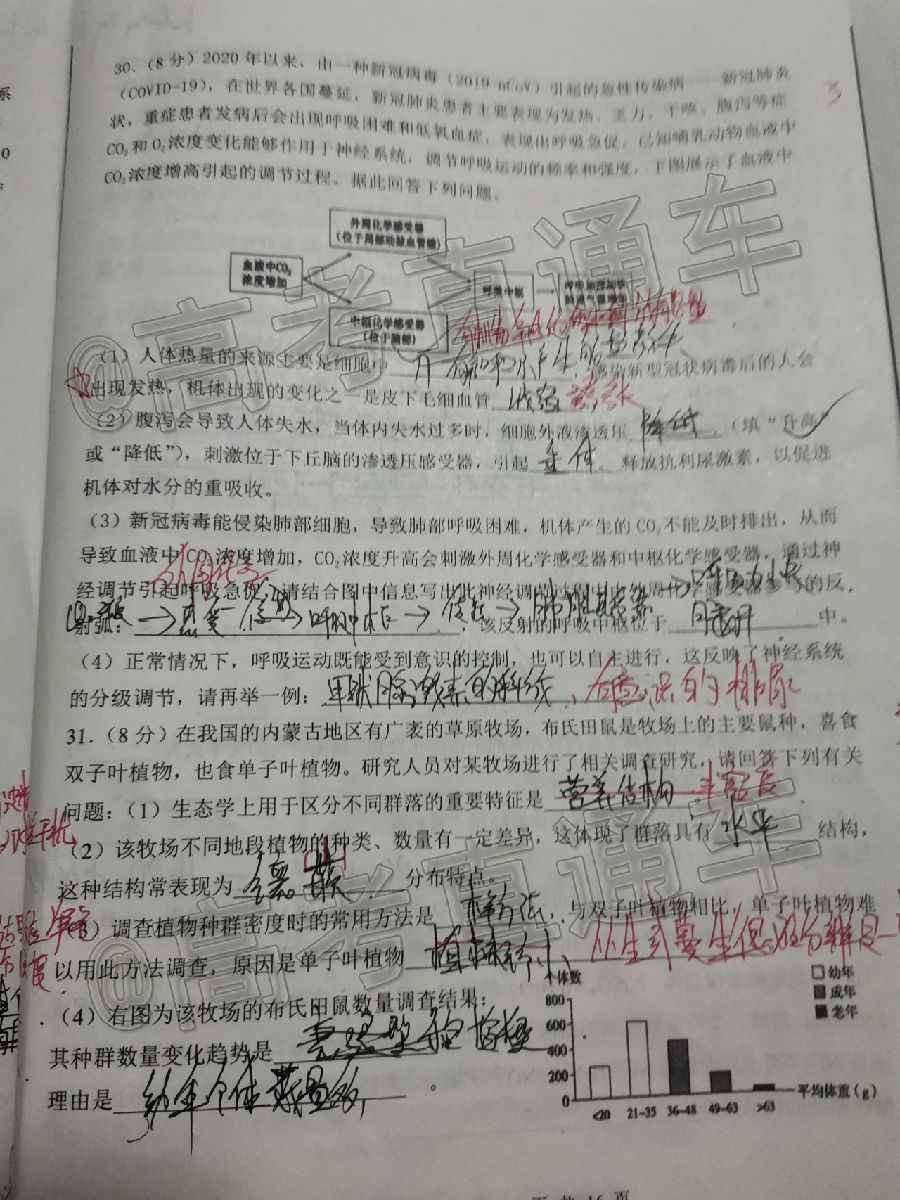 30.（8分）2020年以来，由一种新冠病毒（2019-nCoV）引起的急性传染病——新冠肺炎
（COVID-19），在世界各国蔓延，新冠肺炎患者主要表现为发热、乏力、干咳、腹泻等症
状，重症患者发病后会出现呼吸困难和低氧血症，表现出呼吸急促。已知哺乳动物血液中
CO₂和O₂浓度变化能够作用于神经系统，调节呼吸运动的频率和强度，下图展示了血液中
CO₂浓度增高引起的调节过程。据此回答下列问题。
3
外周化学感受器
（位于局部动脉血管膜）
血液中CO₂
浓度增加
呼吸中枢
中枢化学感受器
（位于脑部）
（1）人体热量的来源主要是细胞中
感染新型冠状病毒后的人会
出现发热，机体出现的变化之一是皮下毛细血管
舒张
（2）腹泻会导致人体失水，当体内失水过多时，细胞外液渗透压 降低 （填“升高”
或“降低”），刺激位于下丘脑的渗透压感受器，引起 垂体 释放抗利尿激素，以促进
机体对水分的重吸收。
（3）新冠病毒能侵染肺部细胞，导致肺部呼吸困难，机体产生的CO₂不能及时排出，从而
导致血液中CO₂浓度增加，CO₂浓度升高会刺激外周化学感受器和中枢化学感受器，通过神
经调节引起呼吸急促，请结合图中信息写出此神经调节的过程中外周化学感受器参与的反
射弧：
该反射的呼吸中枢位于
中。
（4）正常情况下，呼吸运动既能受到意识的控制，也可以自主进行，这反映了神经系统
的分级调节，请再举一例： 甲状腺激素的释放、有意识的排尿
31.（8分）在我国的内蒙古地区有广袤的草原牧场，布氏田鼠是牧场上的主要鼠种，喜食
双子叶植物，也食单子叶植物。研究人员对某牧场进行了相关调查研究，请回答下列有关
问题：（1）生态学上用于区分不同群落的重要特征是 营养结构 丰富度
（2）该牧场不同地段植物的种类、数量有一定差异，这体现了群落具有 水平 结构，
这种结构常表现为 镶嵌 分布特点。
（3）调查植物种群密度时的常用方法是 样方法 ，与双子叶植物相比，单子叶植物难
以用此方法调查，原因是单子叶植物
（4）右图为该牧场的布氏田鼠数量调查结果：
其种群数量变化趋势是
理由是 幼年个体数量多
个体数
800
600
400
200
0
<20 21-35 36-48 49-63 >63
平均体重（g）
幼年
成年
老年
@高考直通车
@高考直通车